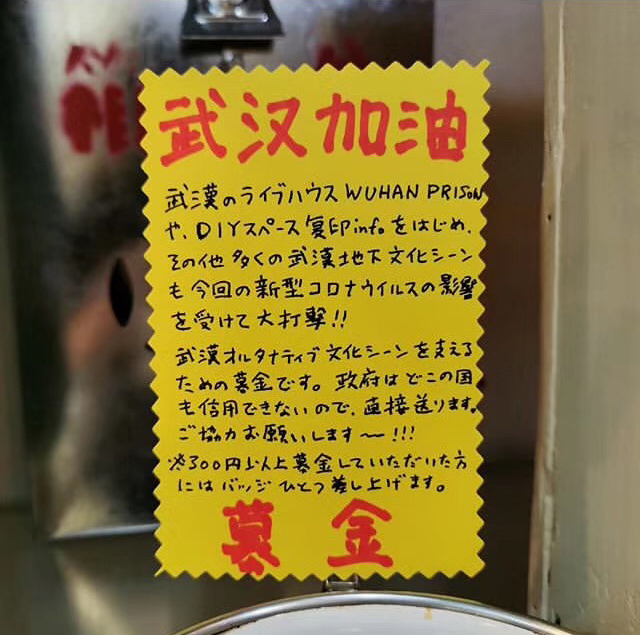 武汉加油
武漢のライブハウス WUHAN PRISON
や、DIYスペース 复印info をはじめ、
その他 多くの 武漢地下 文化シーン
も 今回の 新型コロナウイルスの 影響
を受けて 大打撃!!
武漢オルタナティブ 文化シーン を支える
ための募金です。政府はどこの国
も信用できないので、直接送ります。
ご協力お願いします〜!!!
※300円以上募金していただいた方
にはバッジ ひとつ差し上げます。
募金